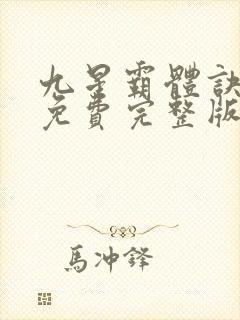 九星霸體訣
免費完整版
馬冲鋒